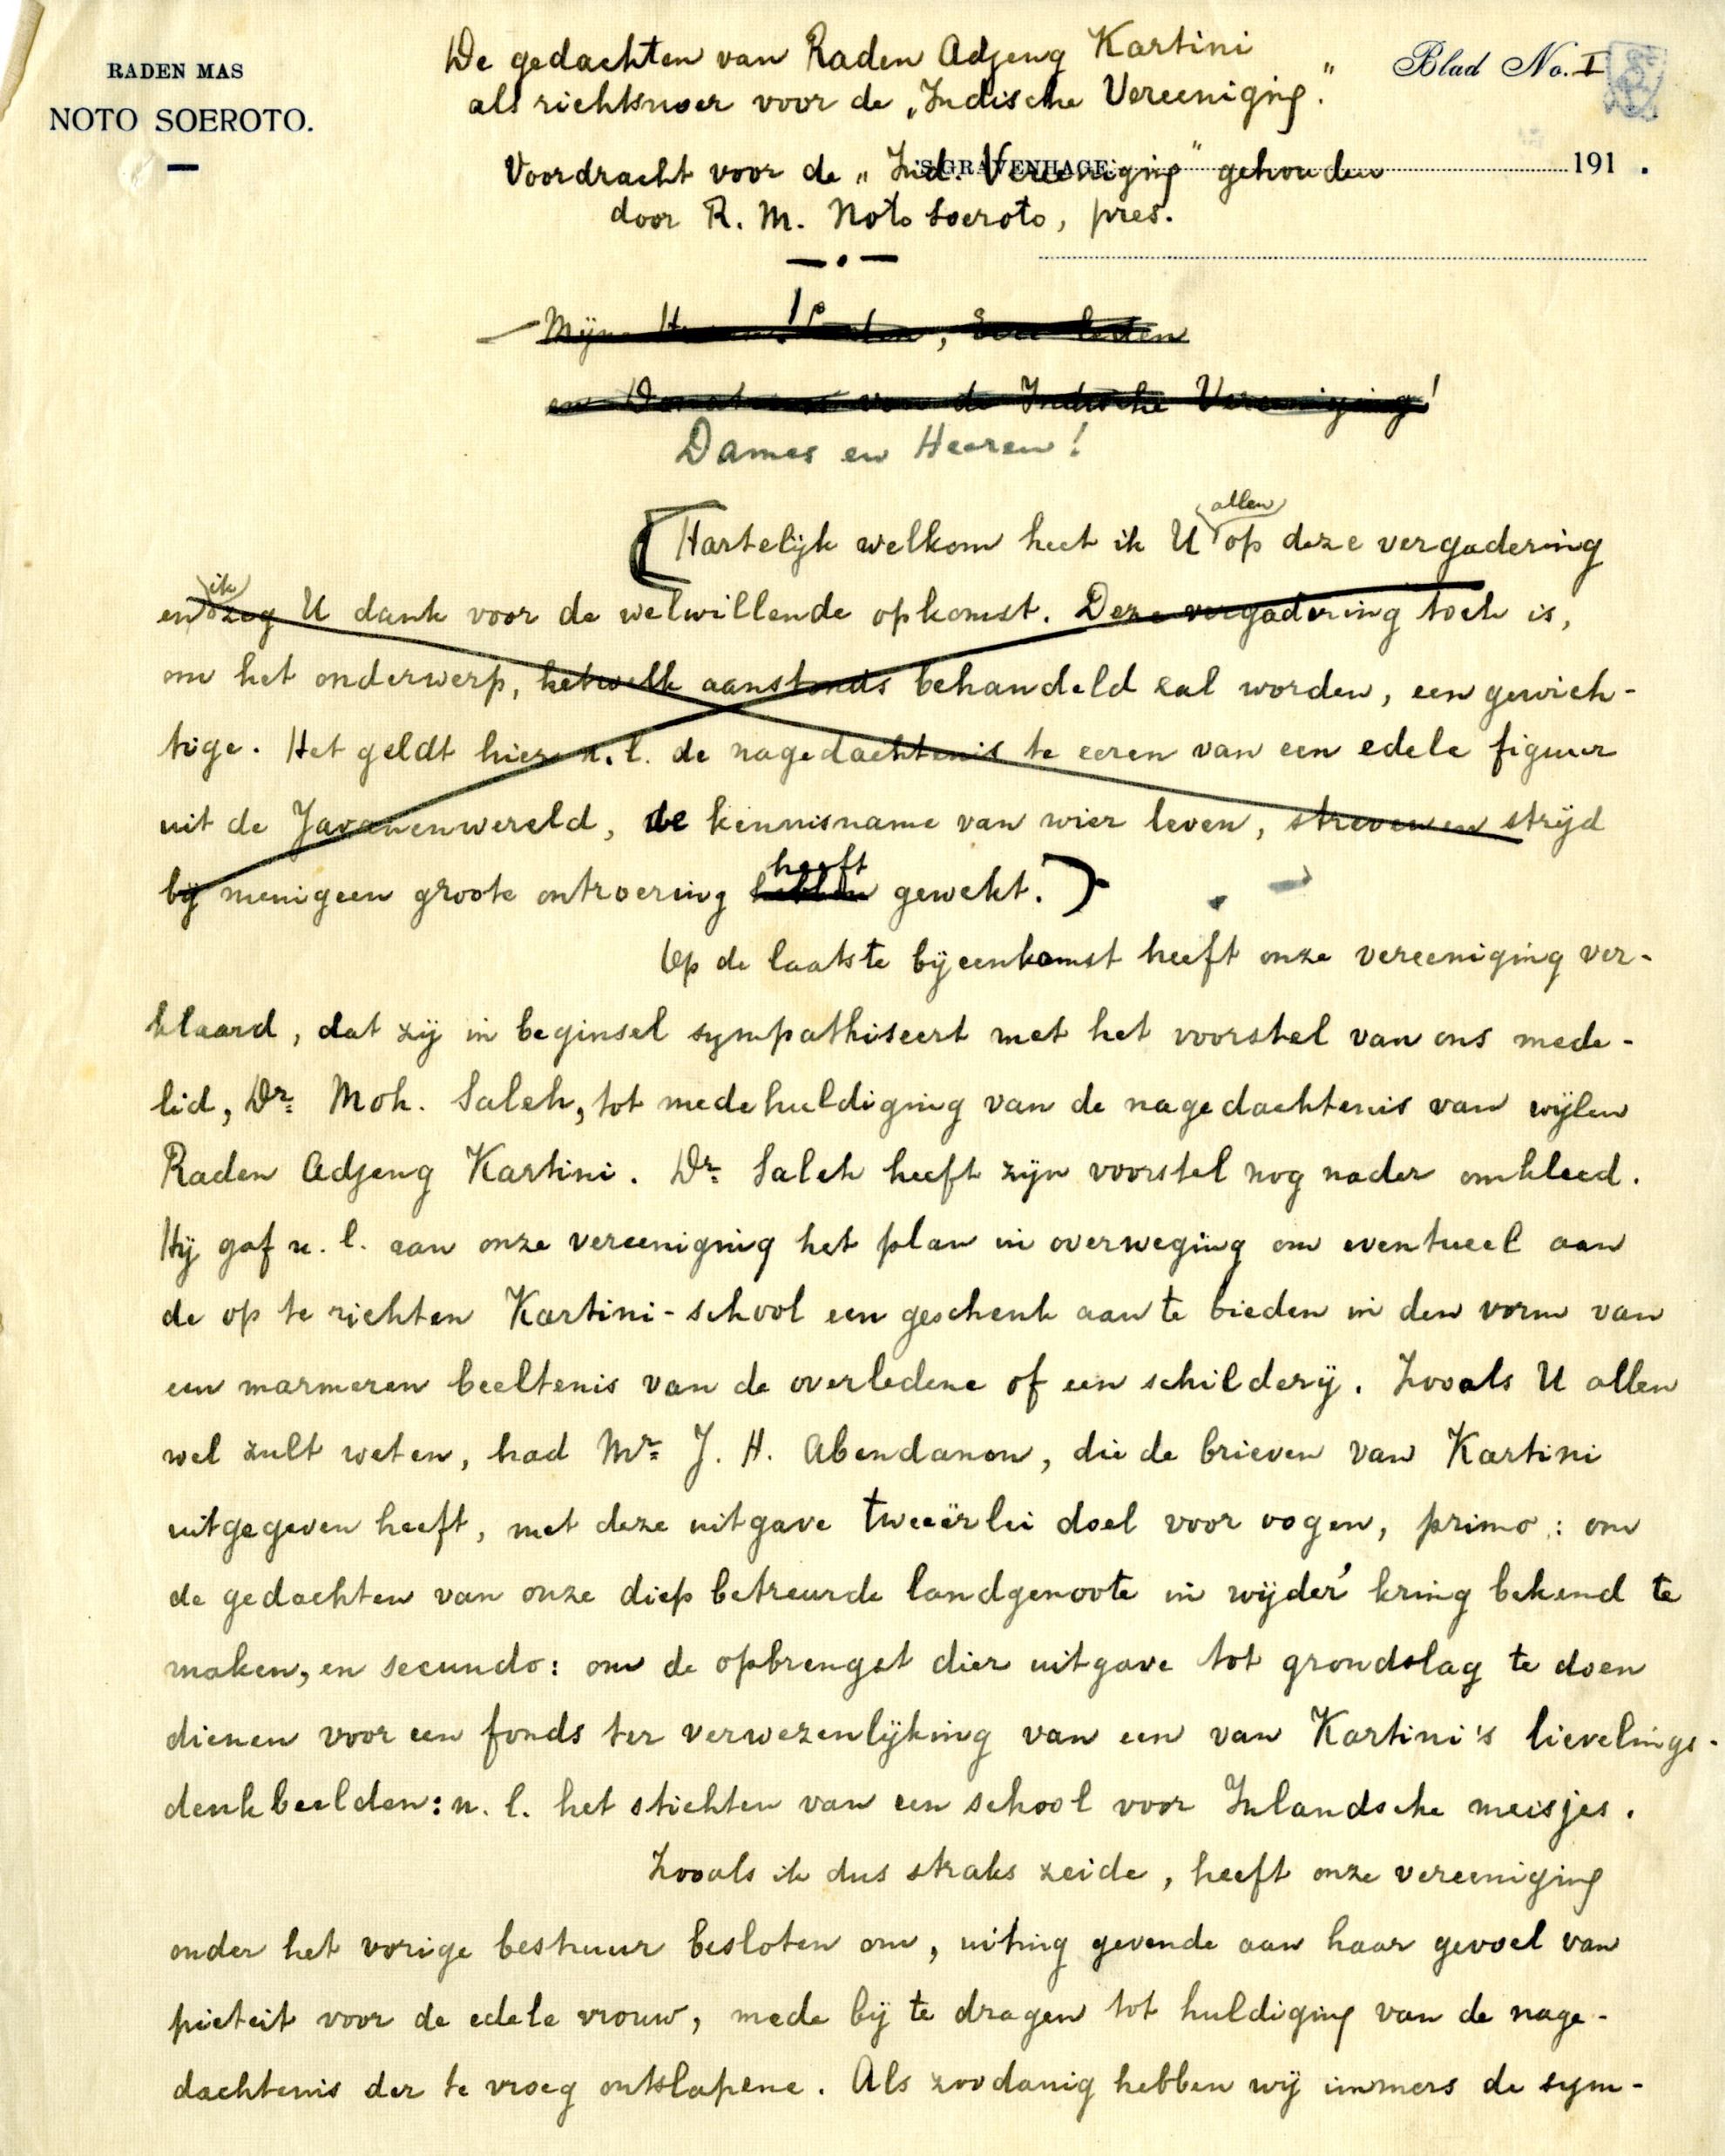 RADEN MAS
NOTO SOEROTO.
De gedachten van Raden Adjeng Kartini
als richtsnoer voor de „Indische Vereeniging."
Blad No. I
Voordracht voor de „Ind. Vereeniging" gehouden
'S-GRAVENHAGE, 191 .
door R. M. Noto Soeroto, pres.
en Donateurs van de Indische Vereeniging!
Dames en Heeren!
allen
Hartelijk welkom heet ik U op deze vergadering
ik
en zeg U dank voor de welwillende opkomst. Deze vergadering toch is,
om het onderwerp, hetwelk aanstonds behandeld zal worden, een gewich-
tige. Het geldt hier n.l. de nagedachtenis te eeren van een edele figuur
uit de Javanenwereld, de kennisname van wier leven, streven en strijd
heeft
bij menigeen groote ontroering hebben gewekt.
Op de laatste bijeenkomst heeft onze vereeniging ver-
klaard, dat zij in beginsel sympathiseert met het voorstel van ons mede-
lid, Dr. Moh. Saleh, tot medehuldiging van de nagedachtenis van wijlen
Raden Adjeng Kartini. Dr. Saleh heeft zijn voorstel nog nader omkleed.
Hij gaf n.l. aan onze vereeniging het plan in overweging om eventueel aan
de op te richten Kartini-school een geschenk aan te bieden in den vorm van
een marmeren beeltenis van de overledene of een schilderij. Zooals U allen
wel zult weten, had Mr. J. H. Abendanon, die de brieven van Kartini
uitgegeven heeft, met deze uitgave tweeërlei doel voor oogen, primo: om
de gedachten van onze diep betreurde landgenoote in wijder' kring bekend te
maken, en secundo: om de opbrengst dier uitgave tot grondslag te doen
dienen voor een fonds ter verwezenlijking van een van Kartini's lievelings-
denkbeelden: n.l. het stichten van een school voor Inlandsche meisjes.
Zooals ik dus straks zeide, heeft onze vereeniging
onder het vorige bestuur besloten om, uiting gevende aan haar gevoel van
piëteit voor de edele vrouw, mede bij te dragen tot huldiging van de nage-
dachtenis der te vroeg ontslapene. Als zoodanig hebben wij immers de sym-